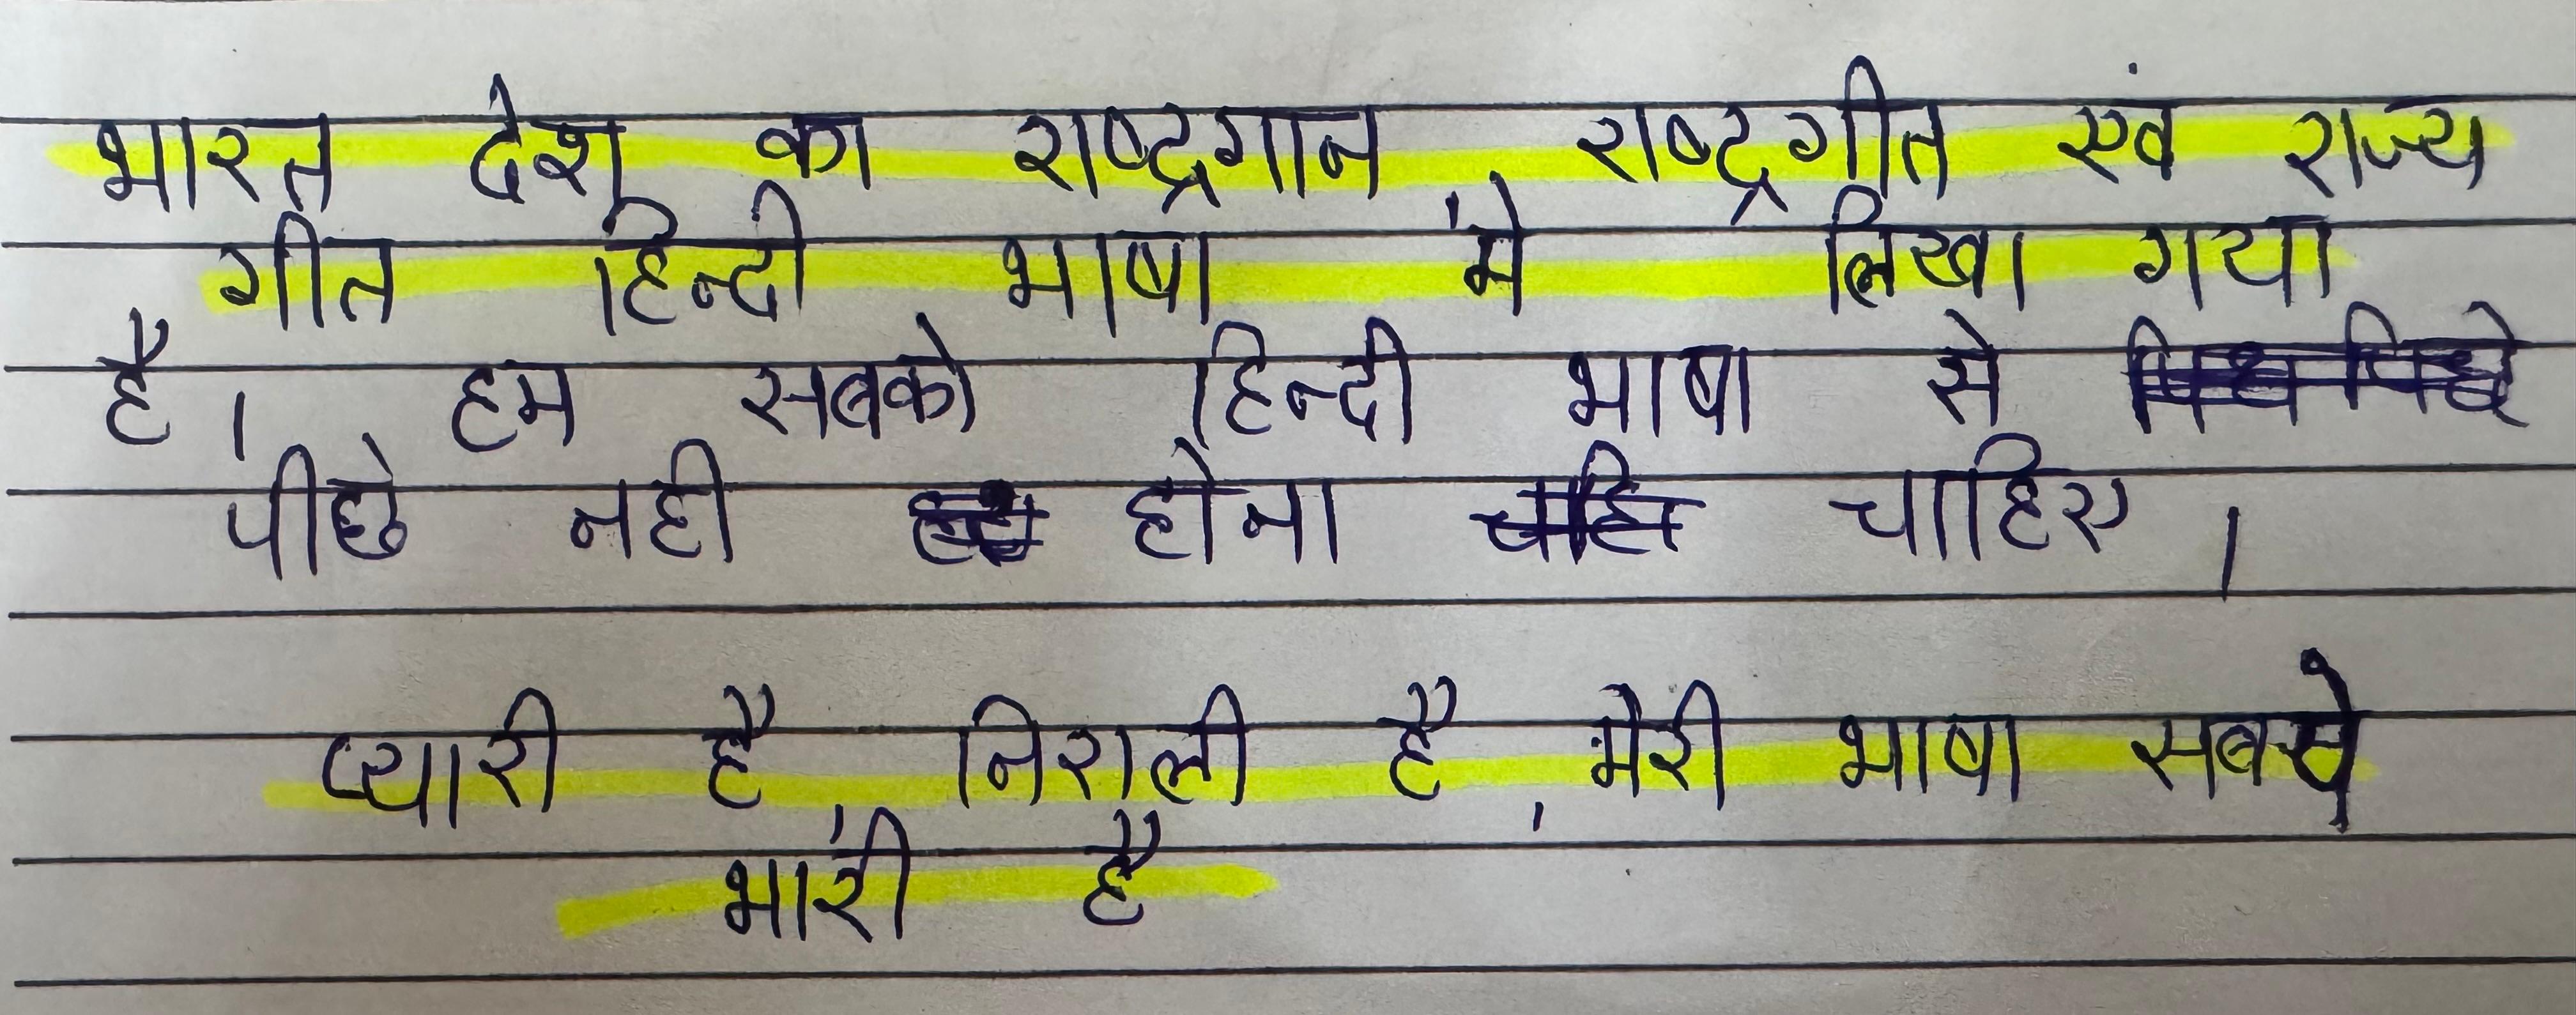 भारत देश का राष्ट्रगान राष्ट्रगीत एवं राज्य
गीत हिन्दी भाषा में लिखा गया
है। हम सबको हिन्दी भाषा से
पीछे नही होना चाहिए।
प्यारी है, निराली है, मेरी भाषा सबसे
भारी है